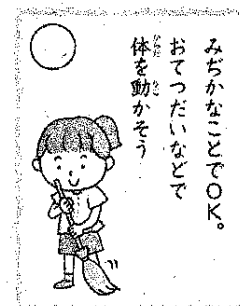 みぢかなことでOK。
おてつだいなどで
体を動かそう